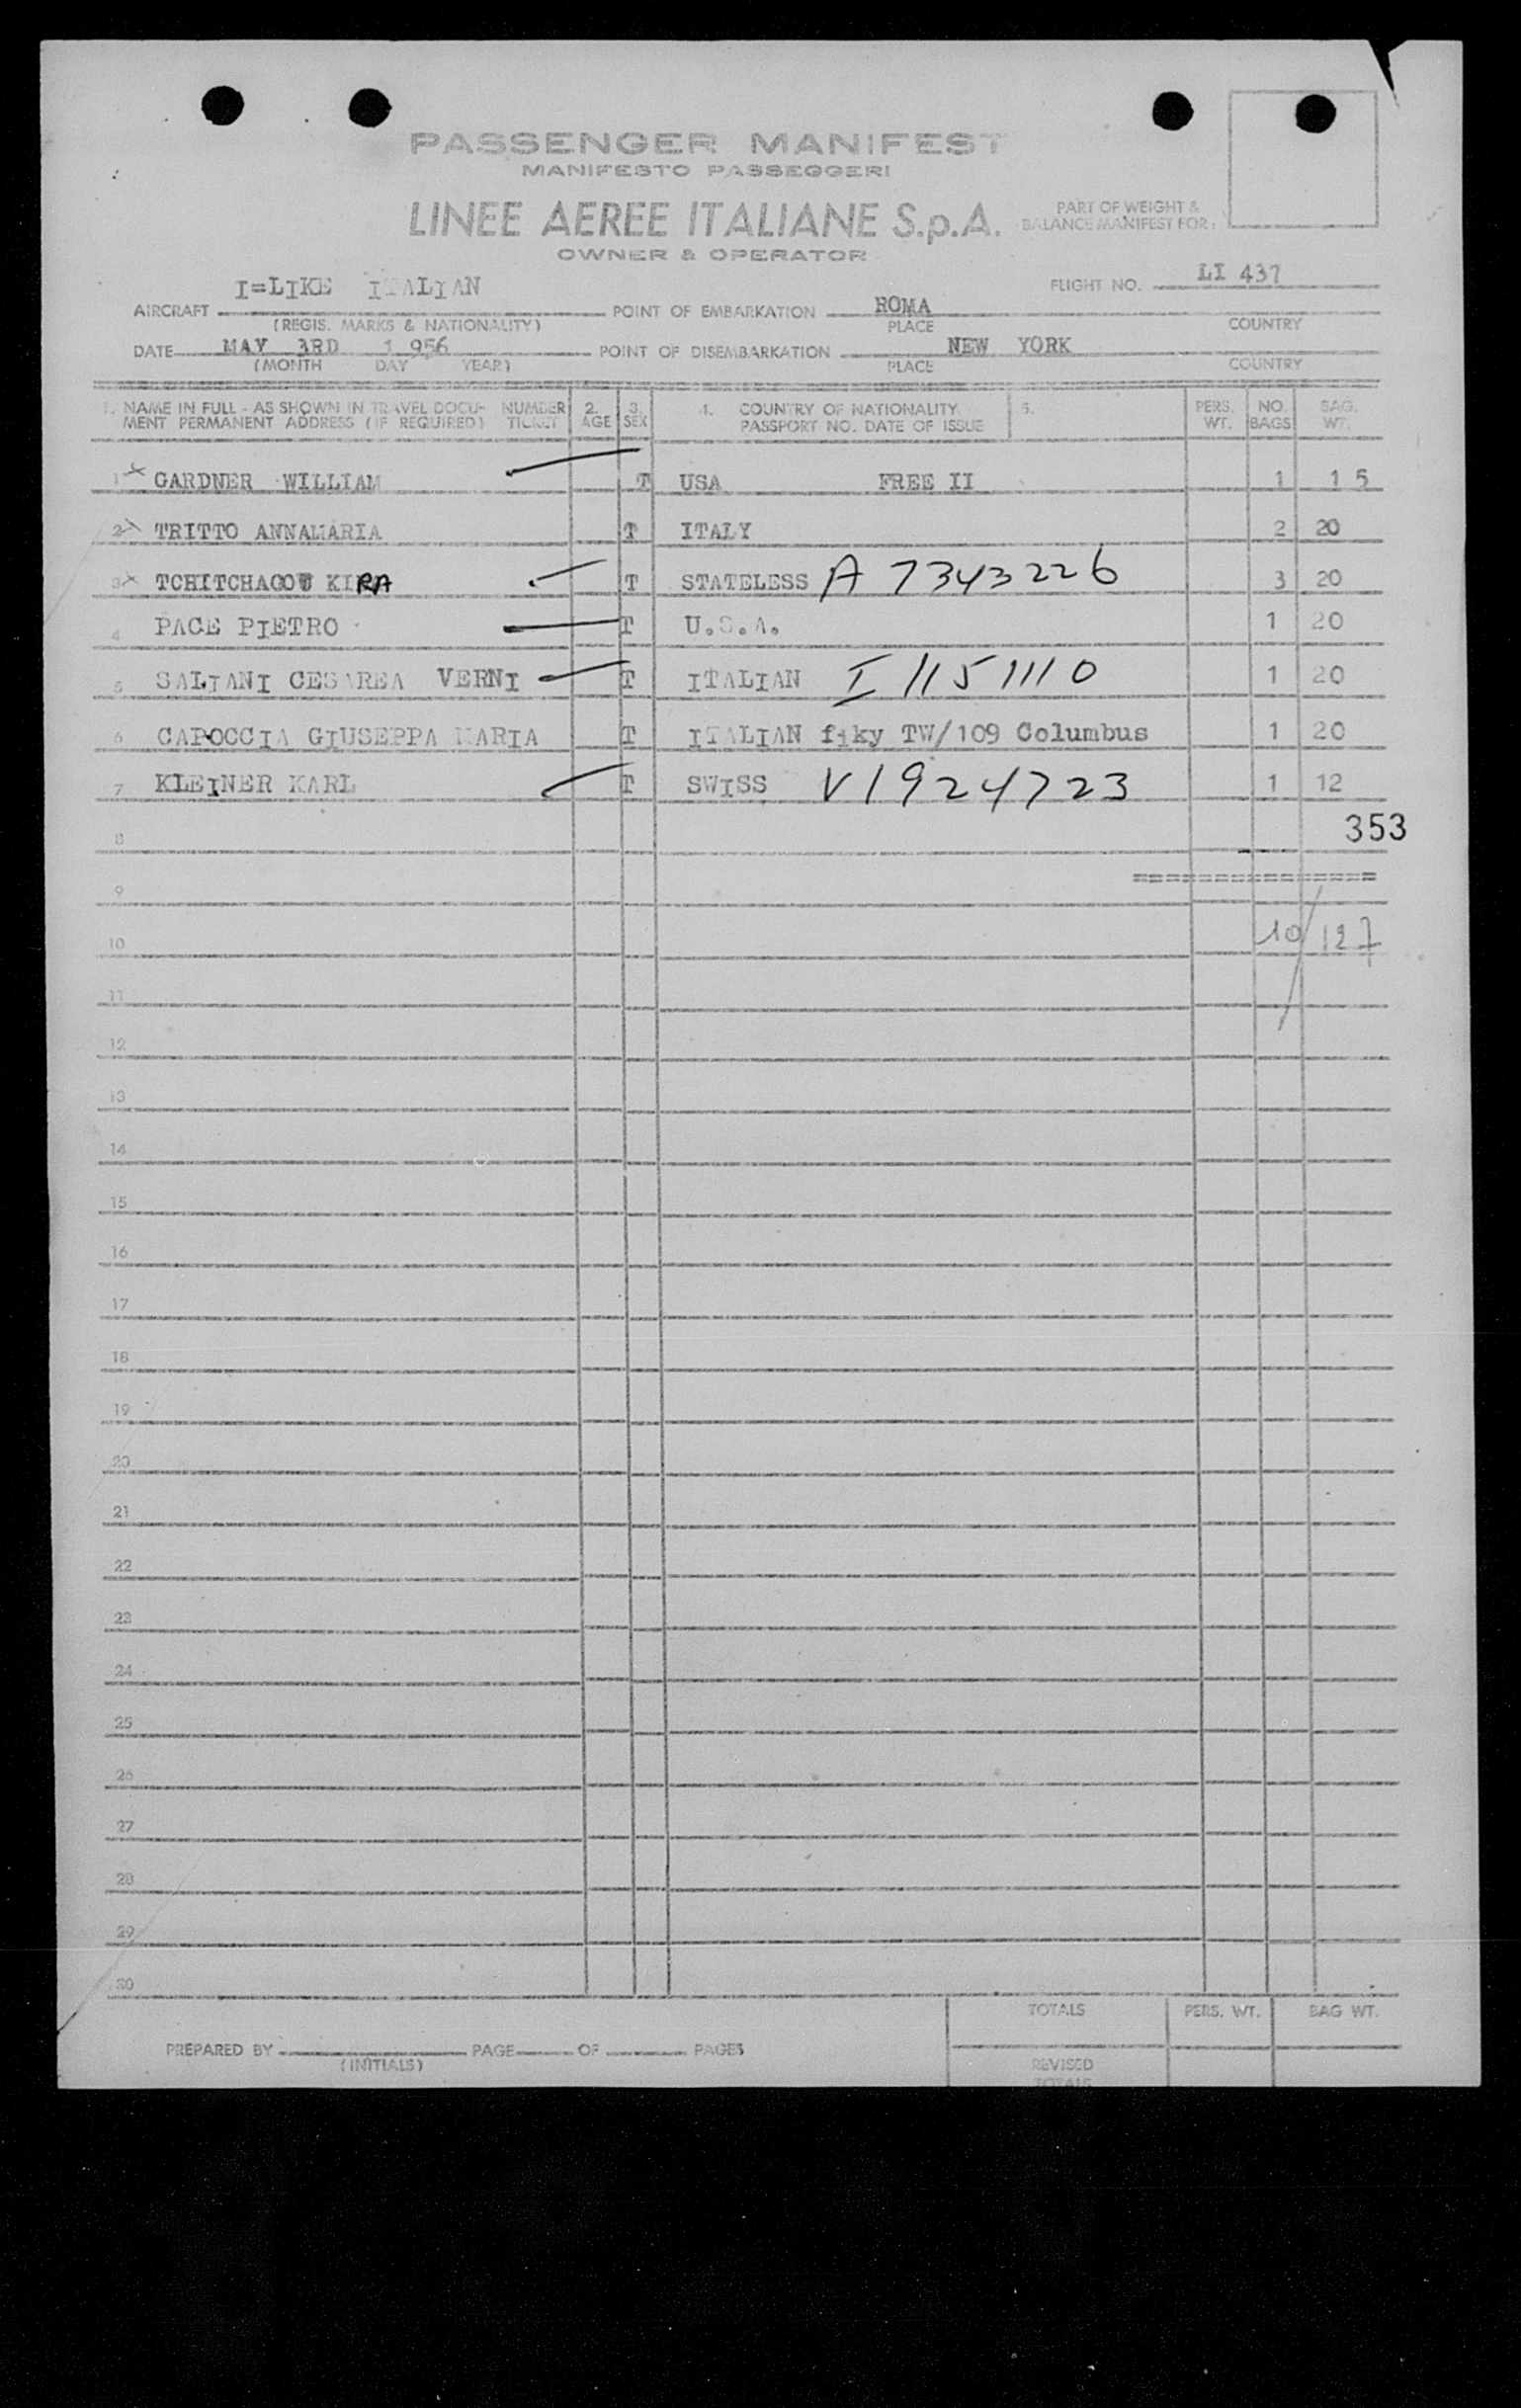 PASSENGER MANIFEST
MANIFESTO PASSEGGERI
LINEE AEREE ITALIANE S.p.A.
OWNER & OPERATOR
PART OF WEIGHT &
BALANCE MANIFEST FOR:
AIRCRAFT I=LIKE ITALIAN
(REGIS. MARKS & NATIONALITY)
POINT OF EMBARKATION ROMA
PLACE COUNTRY
FLIGHT NO. LI 437
DATE MAY 3RD 1 956
(MONTH DAY YEAR)
POINT OF DISEMBARKATION NEW YORK
PLACE COUNTRY
1. NAME IN FULL - AS SHOWN IN TRAVEL DOCU- NUMBER 2. 3. 4. COUNTRY OF NATIONALITY 5. PERS. NO. BAG.
MENT PERMANENT ADDRESS (IF REQUIRED) TICKET AGE SEX PASSPORT NO. DATE OF ISSUE WT. BAGS WT.
1 x GARDNER WILLIAM T USA FREE II 1 1 5
2 x TRITTO ANNAMARIA T ITALY 2 20
3 x TCHITCHAGOV KIRA T STATELESS A 7343226 3 20
4 PACE PIETRO T U.S.A. 1 20
5 SALIANI CESAREA VERNI T ITALIAN I 1151110 1 20
6 CAPOCCIA GIUSEPPA MARIA T ITALIAN fiky TW/109 Columbus 1 20
7 KLEINER KARL T SWISS V1924723 1 12
8 353
9 ===============
10 10/127
11
12
13
14
15
16
17
18
19
20
21
22
23
24
25
26
27
28
29
30
TOTALS PERS. WT. BAG WT.
PREPARED BY PAGE OF PAGES
(INITIALS) REVISED
TOTALS